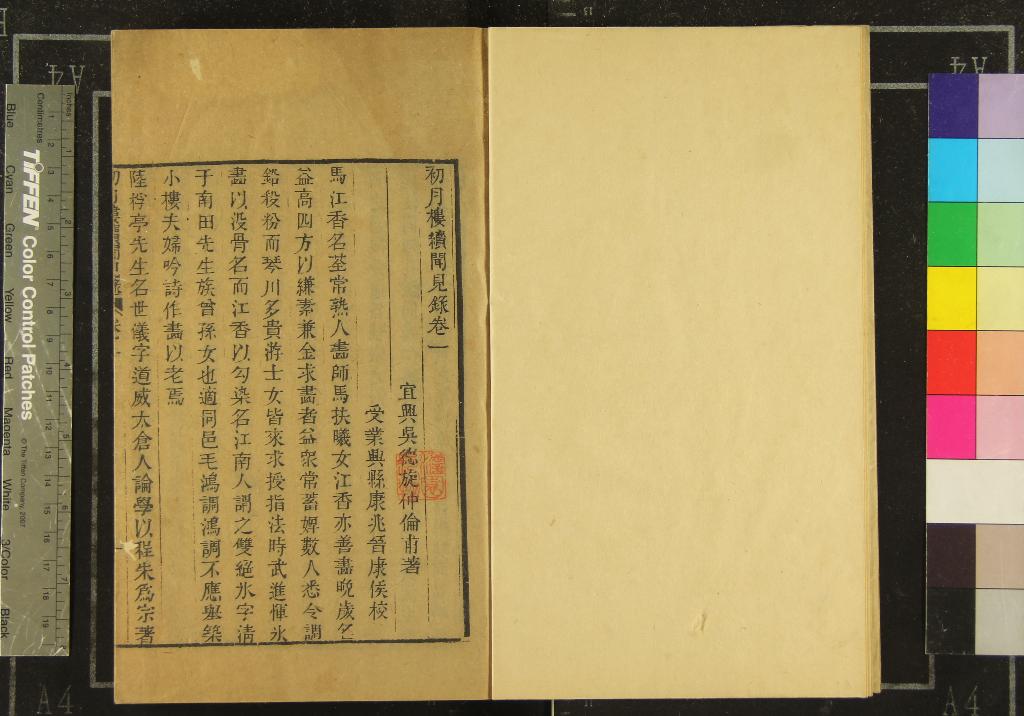 初月樓續聞見錄卷一
宜興吳德旋仲倫甫著
受業興縣康兆晉康侯校
馬江香名荃常熟人畵師馬扶曦女江香亦善畵晚歲名
益高四方以縑素兼金求畵者益衆常蓄婢數人悉令調
鉛殺粉而琴川多貴游士女皆來求授指法時武進惲氷
畵以没骨名而江香以勾染名江南人謂之雙絕氷字清
于南田先生族曾孫女也適同邑毛鴻調鴻調不應舉築
小樓夫婦吟詩作畵以老焉
陸桴亭先生名世儀字道威太倉人論學以程朱爲宗著
A4
A4
A4
A4
Inches
Centimetres
TIFFEN Color Control Patches
© The Tiffen Company, 2007
Blue
Cyan
Green
Yellow
Red
Magenta
White
3/Color
Black